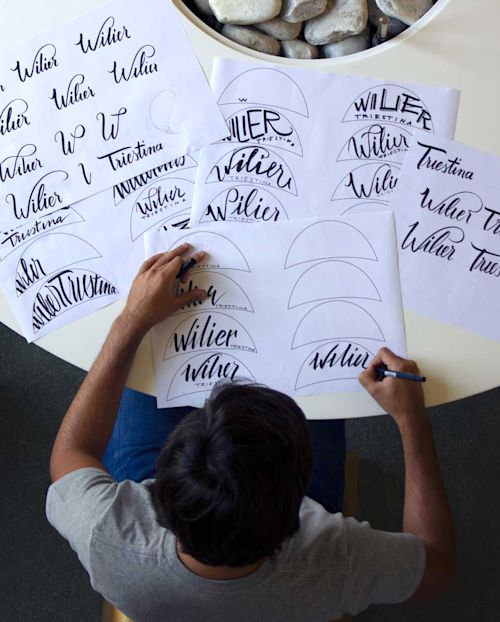 Wilier
Wilier
Wilier
Wilier
Wilier
Wilier
W W
Wilier
Triestina
Wilier
WILIER
TRIESTINA
Wilier
TRIESTINA
Wilier
WILIER
TRIESTINA
Wilier
TRIESTINA
Wilier
Triestina
Wilier
Wilier
Triestina
Wilier
TRIESTINA
Triestina
Wilier
Wilier Triestina
TRIESTINA
Wilier
TRIESTINA
Wilier
TRIESTINA
Wilier